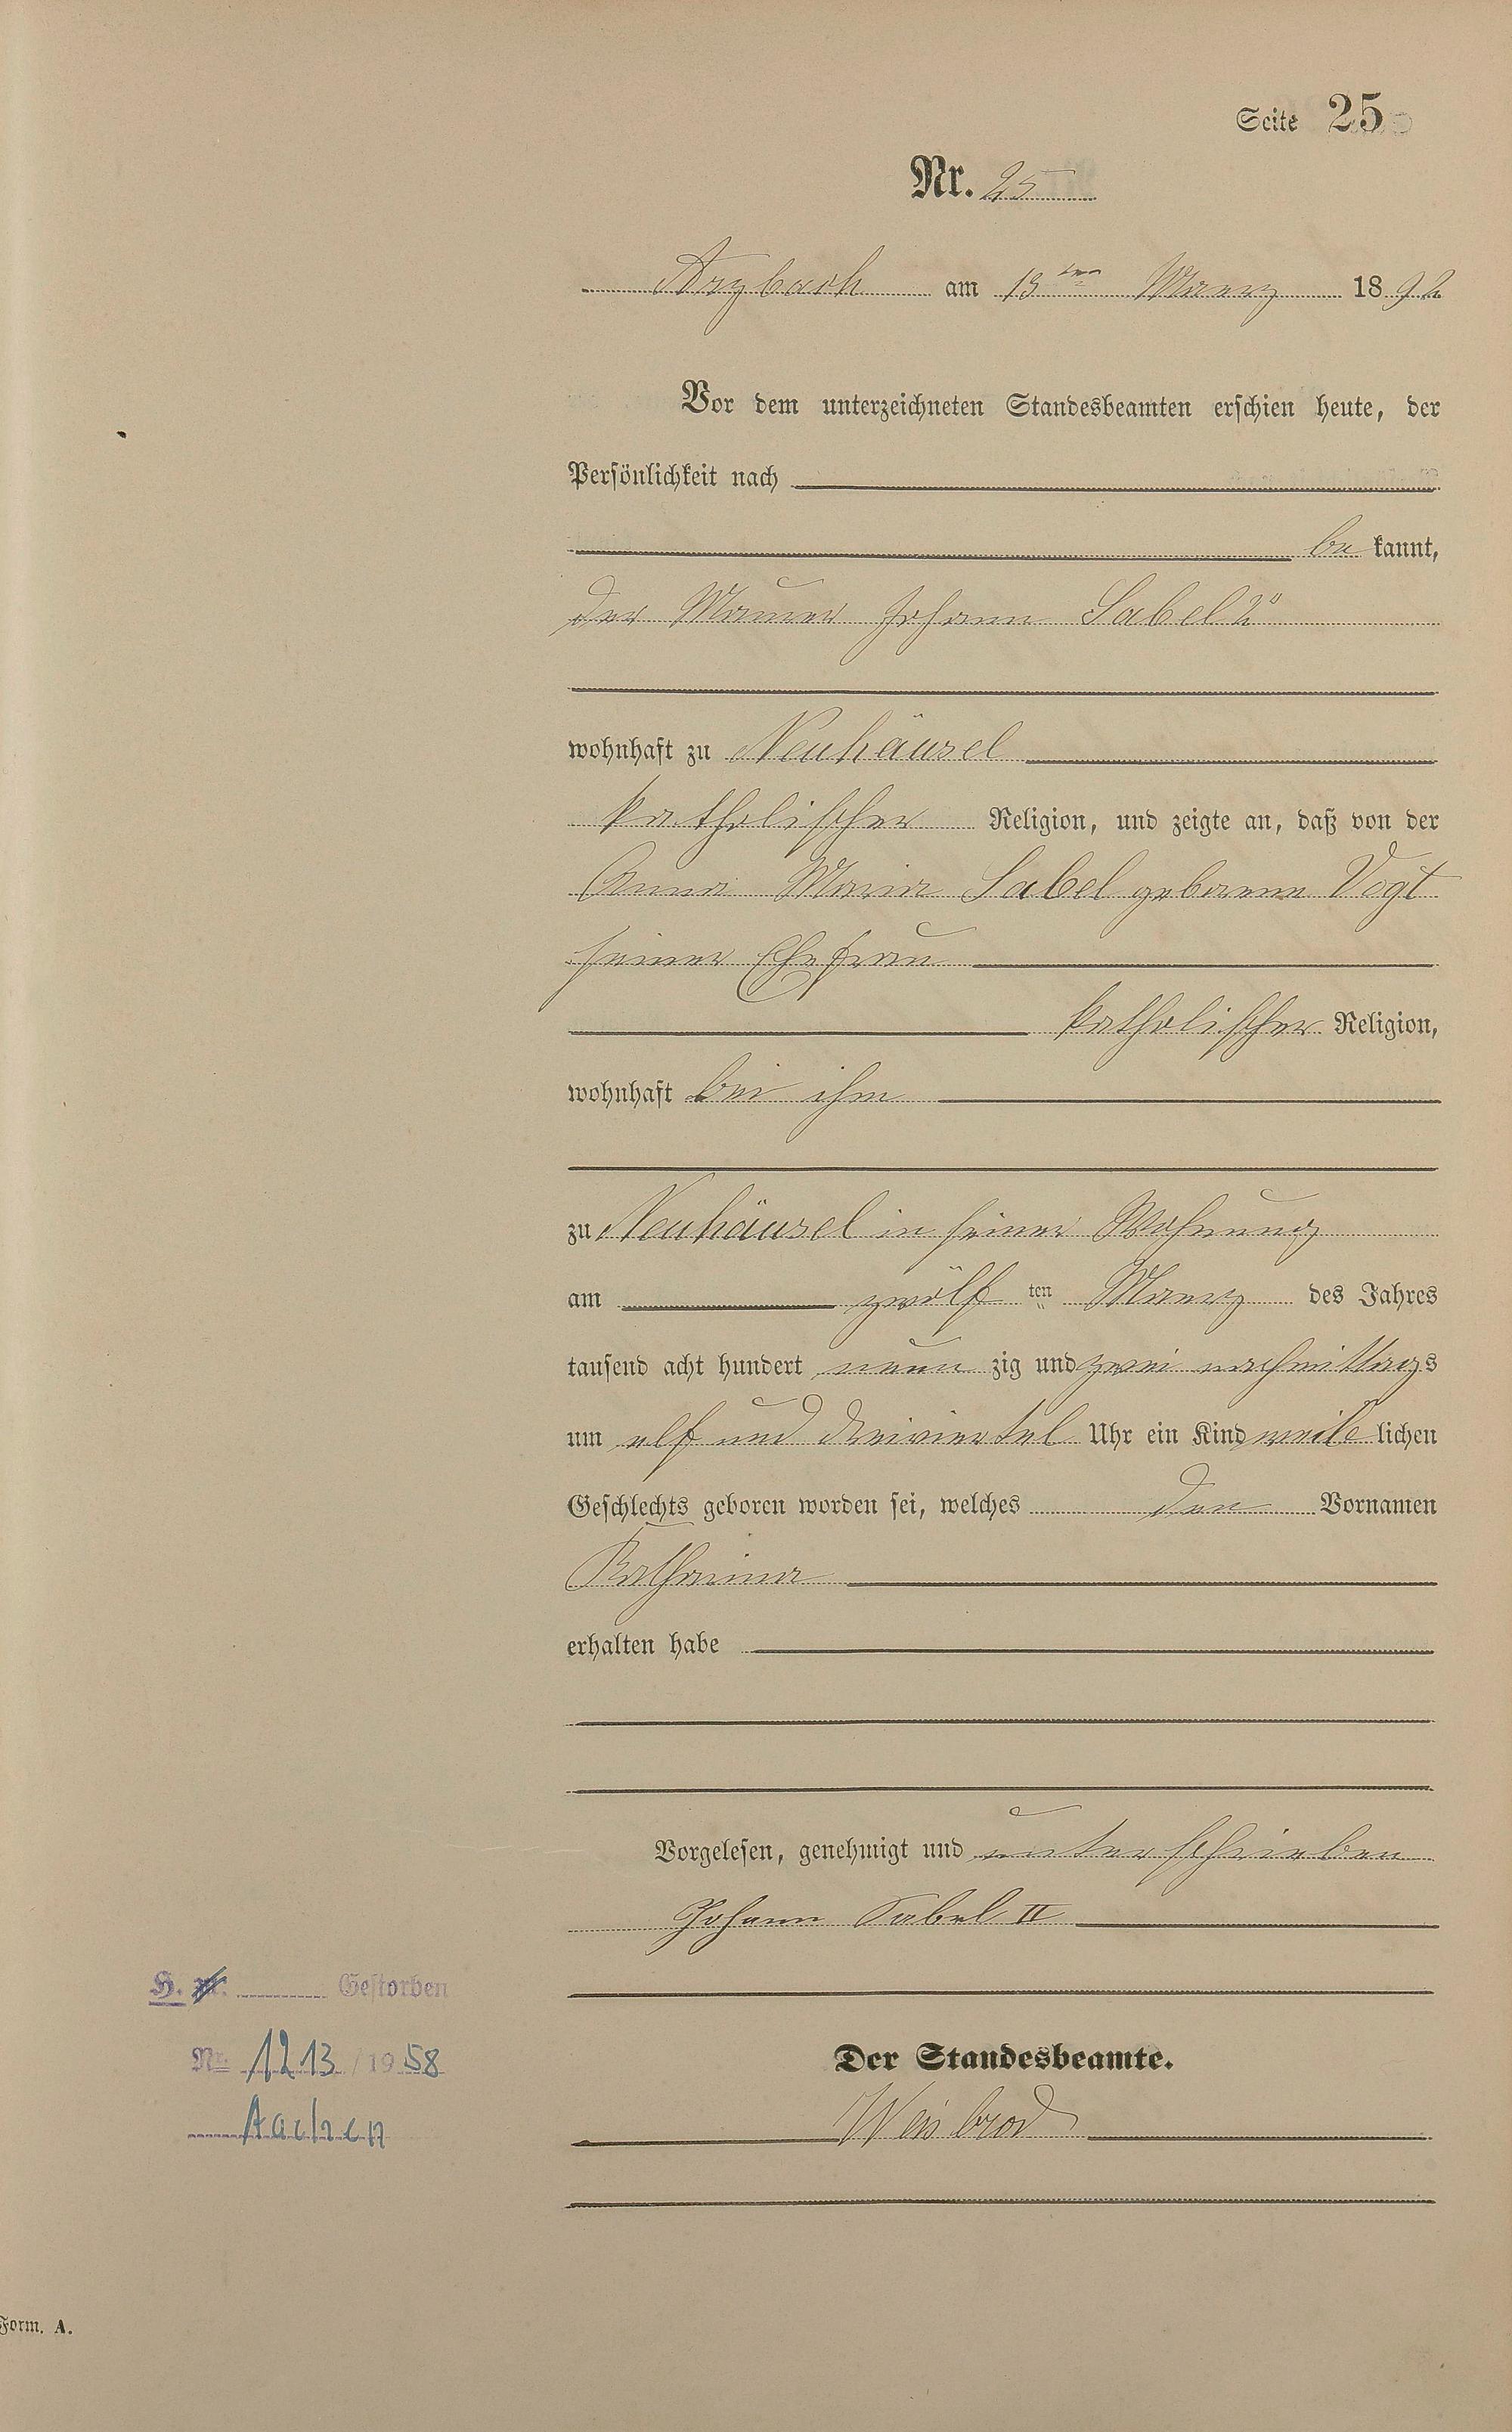 Seite 25
Nr. 25
Arzbach am 13ten Maerz 1892
Vor dem unterzeichneten Standesbeamten erschien heute, der
Persönlichkeit nach
be kannt,
der Maurer Johann Sabel 2r
wohnhaft zu Neuhäusel
katholischer Religion, und zeigte an, daß von der
Anna Maria Sabel geborene Vogt
seiner Ehefrau
katholischer Religion,
wohnhaft bei ihm
zu Neuhäusel in seiner Wohnung
am zwölf ten Maerz des Jahres
tausend acht hundert neun zig und zwei nachmittags
um elf und dreiviertel Uhr ein Kind weib lichen
Geschlechts geboren worden sei, welches den Vornamen
Katharina
erhalten habe
Vorgelesen, genehmigt und unterschrieben
Johann Sabel II
Der Standesbeamte.
Weisbrod
H. Gestorben
Nr. 1213/1958
Aachen
Form. A.